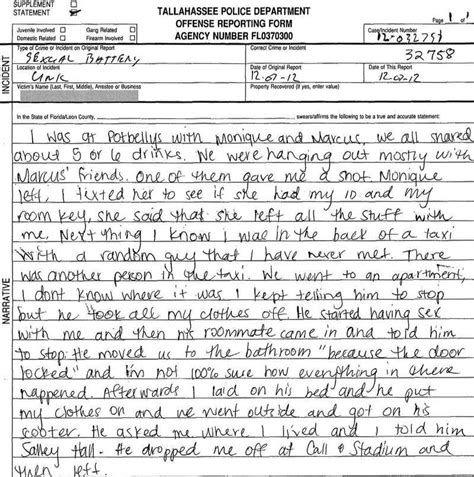 SUPPLEMENT
STATEMENT
TALLAHASSEE POLICE DEPARTMENT
OFFENSE REPORTING FORM
AGENCY NUMBER FL0370300
Page 1 of 1
Juvenile Involved Gang Related
Domestic Related Firearm Involved
Case/Incident Number
12-032758
INCIDENT
Type of Crime or Incident on Original Report
Sexual Battery
Correct Crime or Incident
32758
Location of Incident
Unk
Date of Original Report
12-07-12
Date of Incident
12-07-12
Victim's Name (Last, First, Middle), Arrestee or Business
Property Recovered (If yes, enter value)
In the State of Florida/Leon County, swears/affirms the following to be a true and accurate statement:
NARRATIVE
I was at Potbellys with Monique and Marcus, we all shared
about 5 or 6 drinks. We were hanging out mostly with
Marcus' friends. One of them gave me a shot. Monique
left, I texted her to see if she had my ID and my
room key, she said that she left all the stuff with
me. Next thing I know I was in the back of a taxi
with a random guy that I have never met. There
was another person in the taxi. We went to an apartment,
I dont know where it was. I kept telling him to stop
but he took all my clothes off. He started having sex
with me and then his roommate came in and told him
to stop. He moved us to the bathroom "because the door
locked" and I'm not 100% sure how everything in there
happened. Afterwards I laid on his bed and he put
my clothes on and we went outside and got on his
scooter. He asked me where I lived and I told him
Salley Hall. He dropped me off at Call & Stadium and
then left.